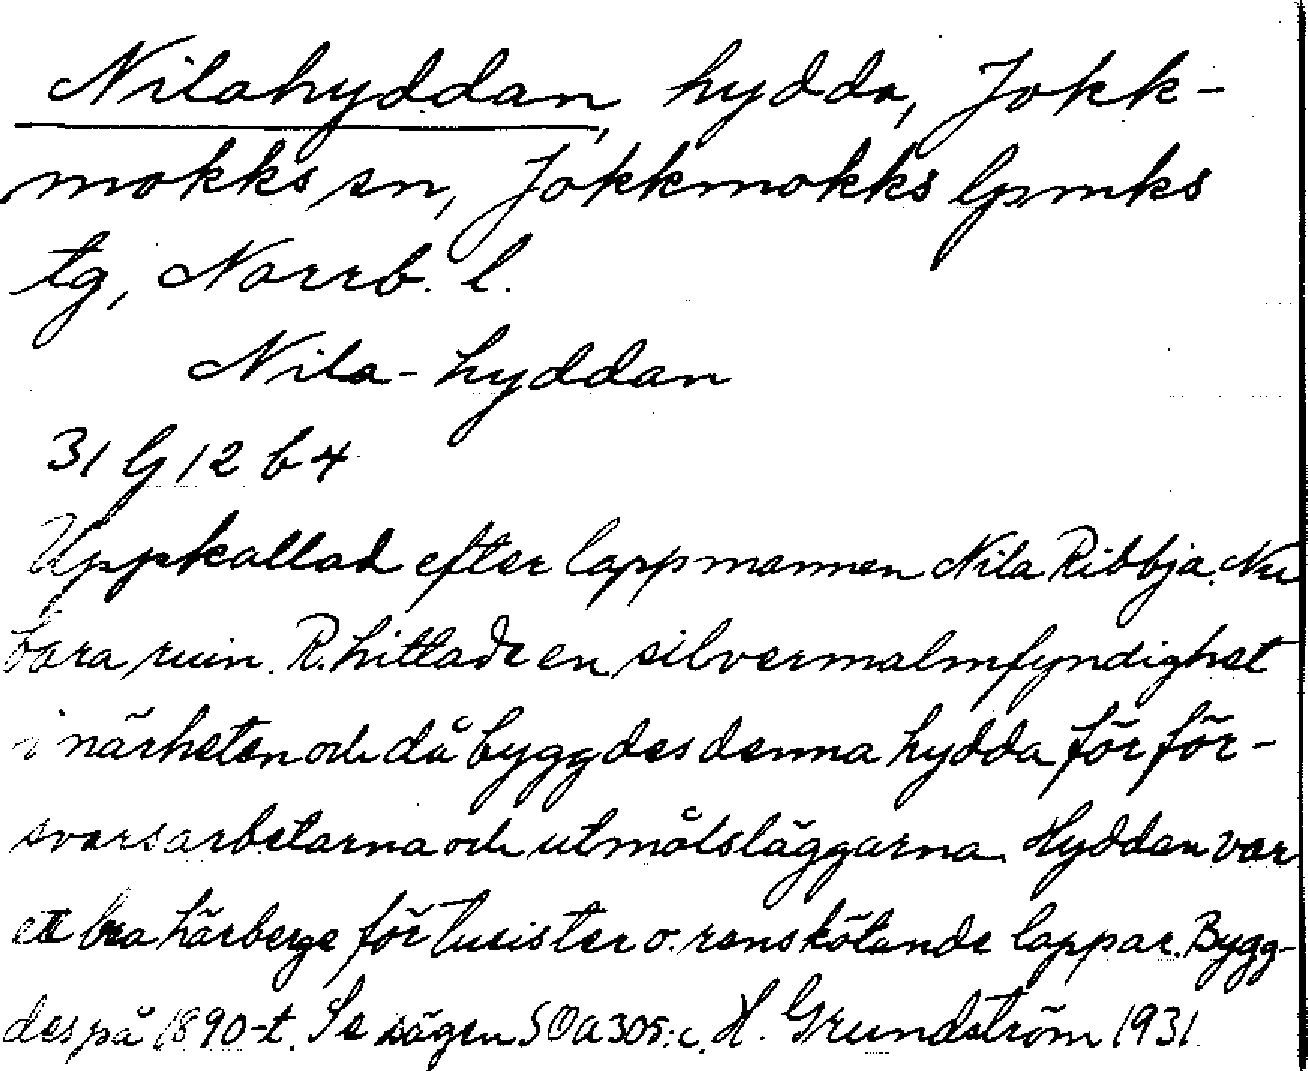 Nilahyddan, hydda, Jokk-
mokks sn, Jokkmokks lpmks
tg, Norrb. l.
Nila-hyddan
31 G 12 b 4
Uppkallad efter lappmannen Nila Ribbja. Nu
bara ruin. R. hittade en silvermalmfyndighet
i närheten och då byggdes denna hydda för för-
svarsarbetarna och utmålsläggarna. Hyddan var
ett bra härberge för turister o. renskötande lappar. Bygg-
des på 1890-t. Se sägen SOa 305:c. H. Grundström 1931